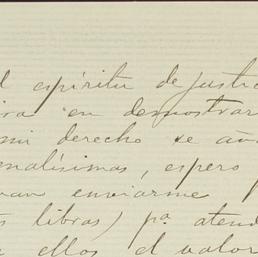 l espíritu de justic
ira en demostrar
mi derecho se aña
enalísimas, espero
van enviarme
s libras) pª atend
e ellos el valor